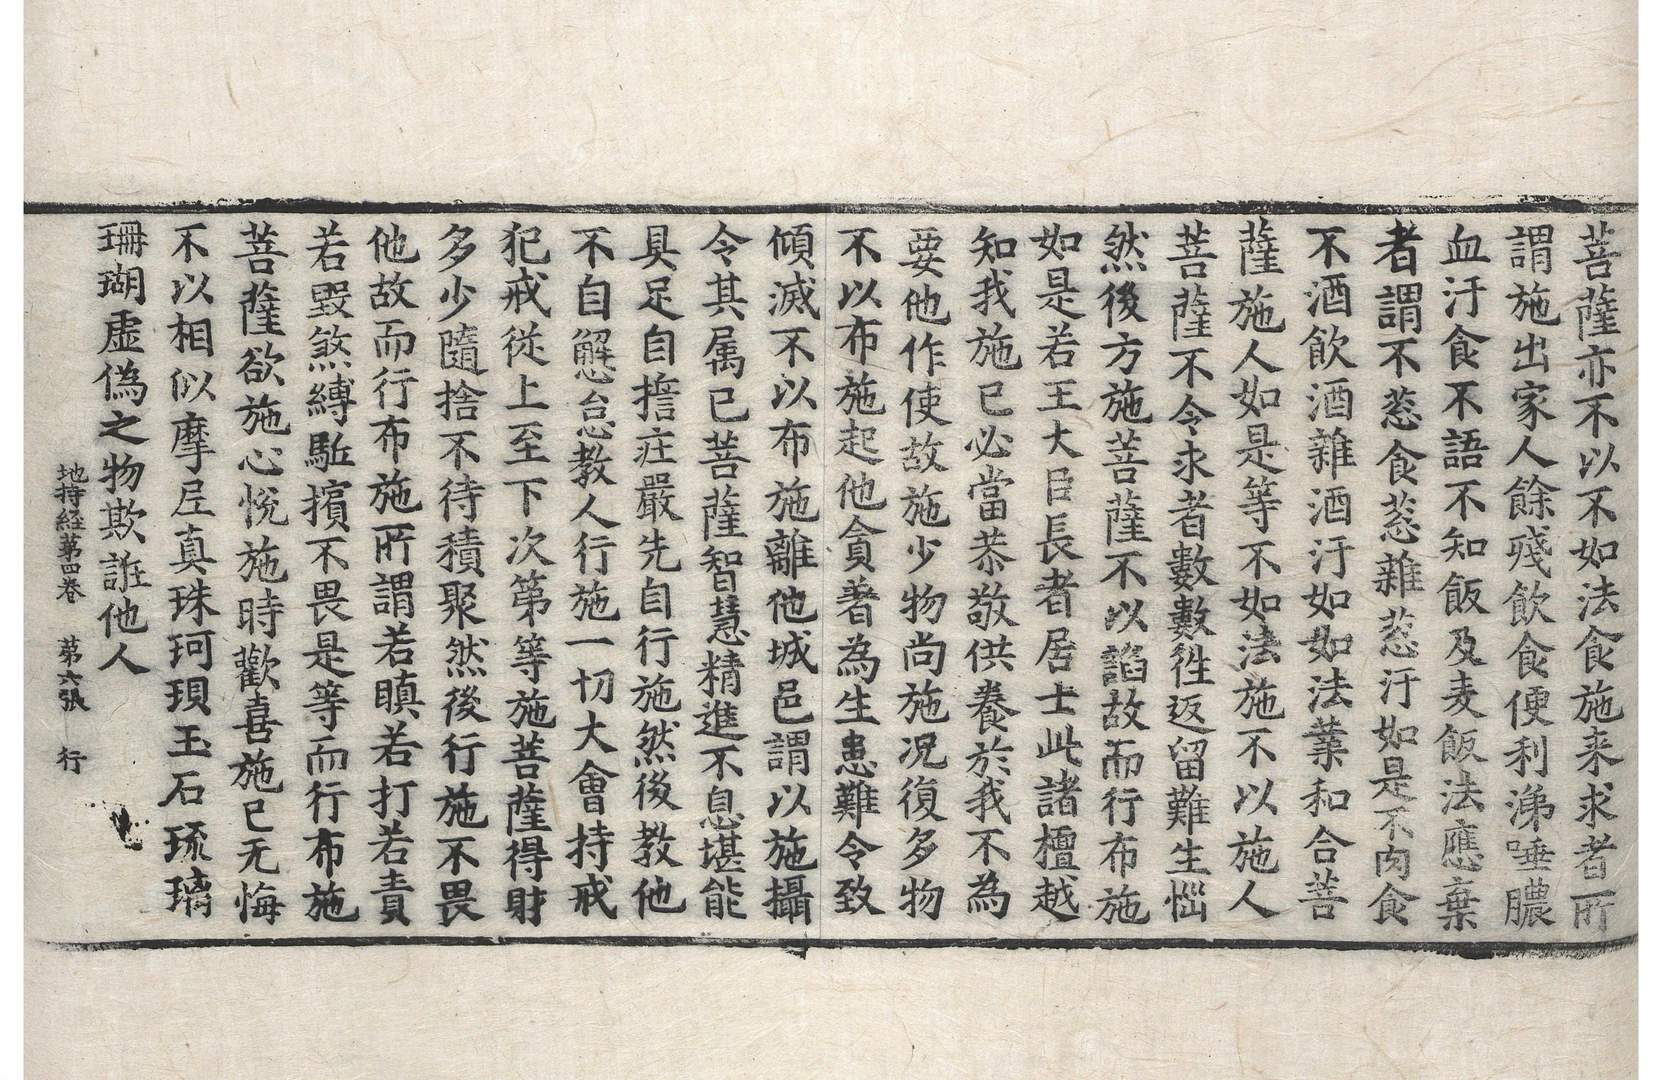 菩薩亦不以不如法食施来求者所
謂施出家人餘殘飲食便利涕唾膿
血汙食不語不知飯及麦飯法應棄
者謂不葱食葱雜葱汙如是不肉食
不酒飲酒雜酒汙如如法業和合菩
薩施人如是等不如法施不以施人
菩薩不令求者數數徃返留難生惱
然後方施菩薩不以諂故而行布施
如是若王大臣長者居士此諸檀越
知我施已必當恭敬供養於我不為
要他作使故施少物尚施况復多物
不以布施起他貪著為生患難令致
傾滅不以布施離他城邑謂以施攝
令其属已菩薩智慧精進不息堪能
具足自擔莊嚴先自行施然後教他
不自懈怠教人行施一切大會持戒
犯戒従上至下次第等施菩薩得財
多少隨捨不待積聚然後行施不畏
他故而行布施所謂若瞋若打若責
若毀煞縛駈擯不畏是等而行布施
菩薩欲施心悦施時歡喜施已无悔
不以相似摩尼真珠珂珼玉石琉璃
珊瑚虛偽之物欺誑他人
地持経第四卷　第六張　行